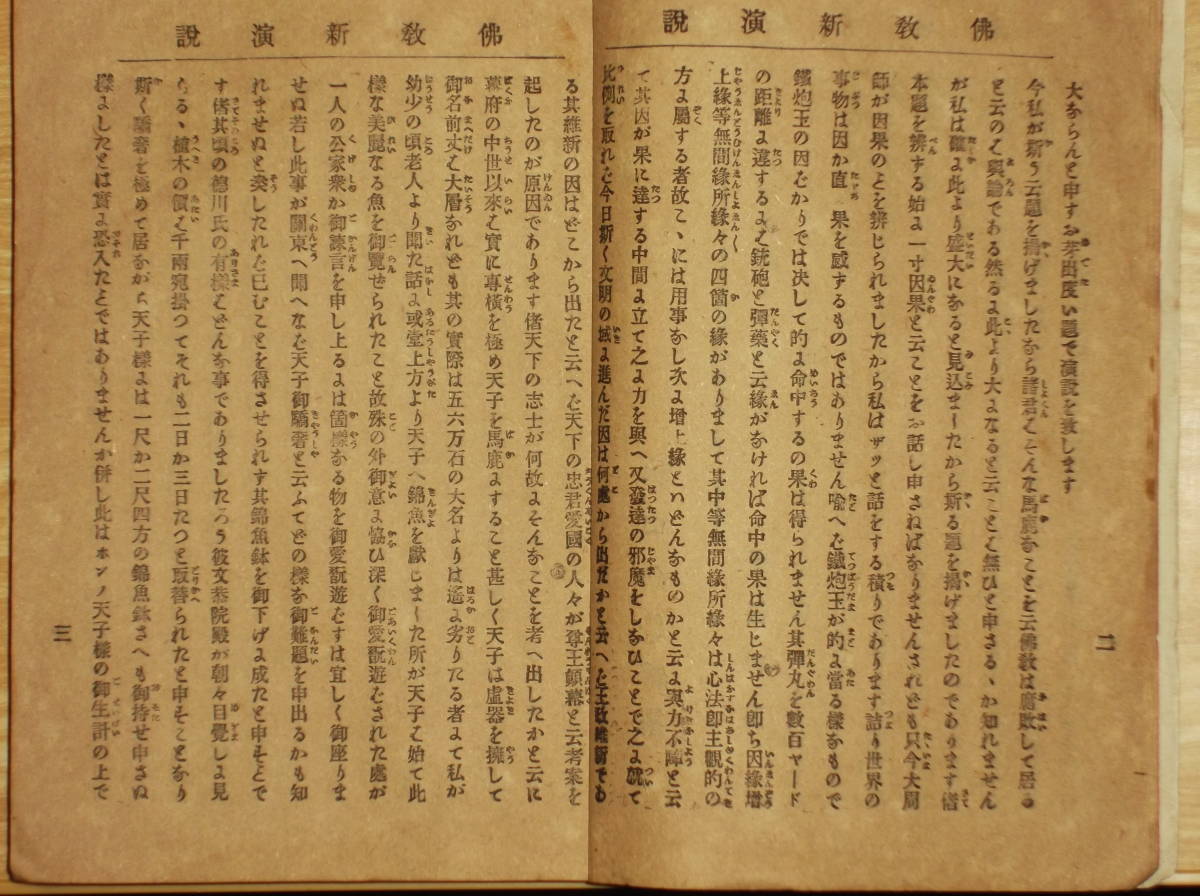 佛教新演說
大ならんと申すお芽出度い題で演説を致します
今私が斯う云題を揚げましたなら諸君はそんな馬鹿なことを云佛敎は腐敗して居る
と云のは輿論である然るに此より大になると云ことは無ひと申さるゝか知れません
が私は確に此より盛大になると見込ましたから斯る題を揚げましたのであります偖
本題を辨する始に一寸因果と云ことをお話し申さねばなりませんされども只今大周
師が因果のことを辨じられましたから私はザッと話をする積りであります詰り世界の
事物は因か直　果を感ずるものではありません喩へば鐵炮玉が的に當る樣なもので
鐵炮玉の因ばかりでは决して的に命中するの果は得られません其彈丸を數百ヤード
の距離に達するには銃砲と彈藥と云緣がなければ命中の果は生じません卽ち因緣增
上緣等無間緣所緣々の四箇の緣がありまして其中等無間緣所緣々は心法卽主觀的の
方に屬する者故こゝには用事なし次に增上緣とハどんなものかと云に與力不障と云
て其因が果に達する中間に立て之に力を與へ又發達の邪魔をしなひことで之に就て
比例を取れば今日斯く文明の域に進んだ因は何處から出たかと云へば王政維新であ
二
佛教新演說
る其維新の因はどこから出たと云へば天下の忠君愛國の人々が尊王顚幕と云考案を
起したのが原因であります偖天下の志士が何故にそんなことを考へ出したかと云に
幕府の中世以來は實に專橫を極め天子を馬鹿にすること甚しく天子は虛器を擁して
御名前丈は大層なれども其の實際は五六万石の大名よりは遙に劣りたる者にて私が
幼少の頃老人より聞た話に或堂上方より天子へ錦魚を獻じました所が天子は始て此
樣な美麗なる魚を御覽ぜられたこと故殊の外御意に協ひ深く御愛翫遊ばされた處が
一人の公家衆か御諫言を申し上るには箇樣なる物を御愛翫遊ばすは宜しく御座りま
せぬ若し此事が關東へ聞へなば天子御驕奢と云ふてどの樣な御難題を申出るかも知
れませぬと奏したれば已むことを得させられす其錦魚鉢を御下げに成たと申そとで
す偖其頃の德川氏の有樣はどんな事でありましたろう彼文恭院殿が朝々目覺しに見
らるゝ植木の價は千兩宛掛つてそれも二日か三日たつと取替られたと申そことなり
斯く驕奢を極めて居ながら天子樣には一尺か二尺四方の錦魚鉢さへも御持せ申さぬ
樣にしたとは實に恐入たとではありませんか併し此はホンノ天子樣の御生計の上で
三